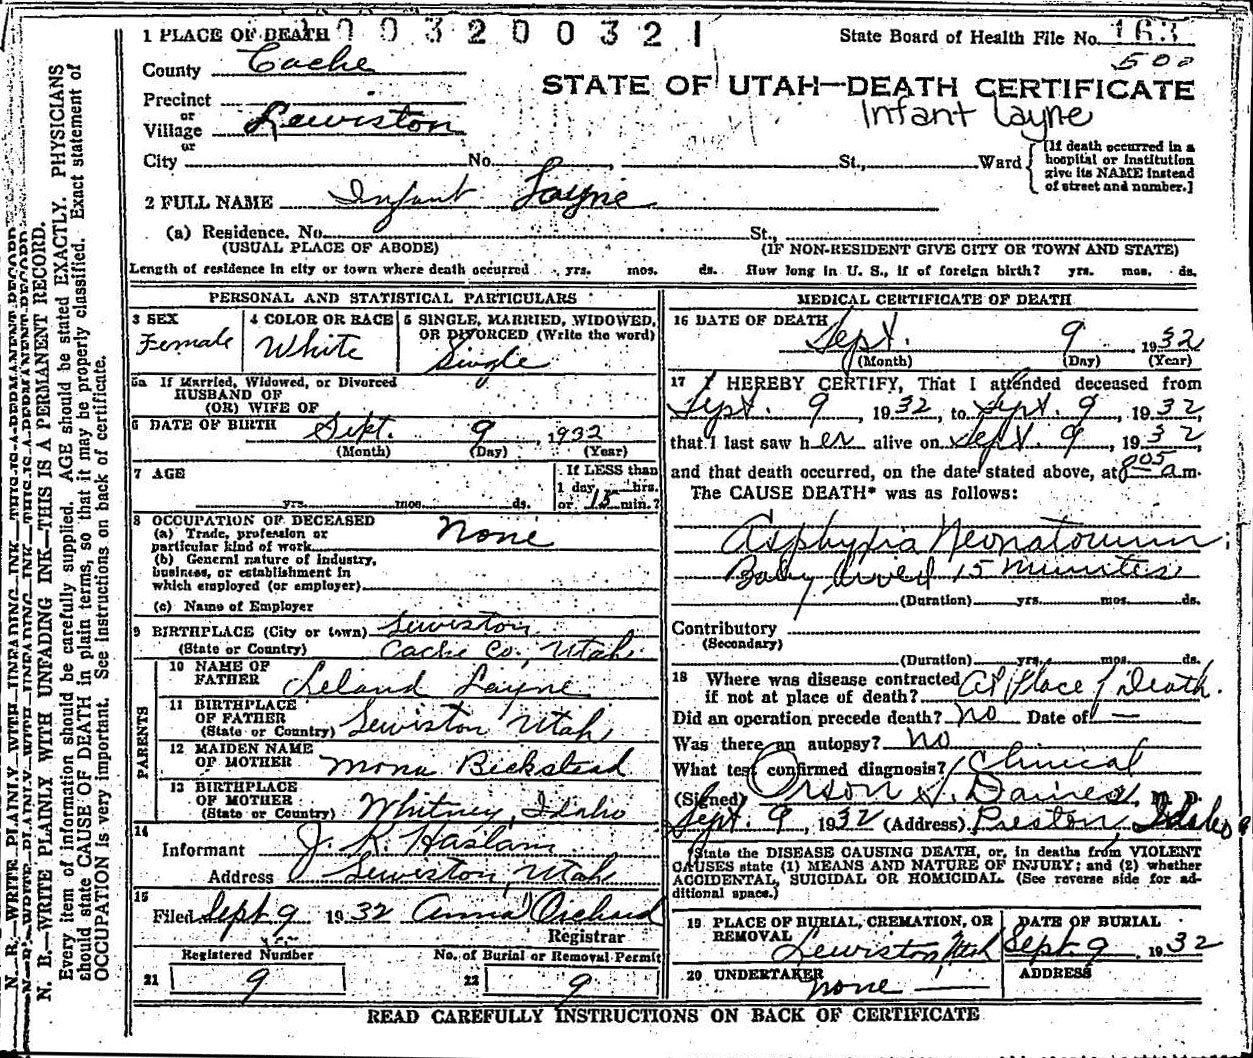 1 PLACE OF DEATH
1003200321
State Board of Health File No. 163
500
County Cache
STATE OF UTAH—DEATH CERTIFICATE
Infant Layne
Precinct
or
Village Lewiston
or
City No. St., Ward
[If death occurred in a
hospital or institution
give its NAME instead
of street and number.]
2 FULL NAME Infant Layne
(a) Residence. No. St.,
(USUAL PLACE OF ABODE) (IF NON-RESIDENT GIVE CITY OR TOWN AND STATE)
Length of residence in city or town where death occurred yrs. mos. ds. How long in U. S., if of foreign birth? yrs. mos. ds.
PERSONAL AND STATISTICAL PARTICULARS
3 SEX
Female
4 COLOR OR RACE
White
5 SINGLE, MARRIED, WIDOWED,
OR DIVORCED (Write the word)
Single
5a If Married, Widowed, or Divorced
HUSBAND OF
(OR) WIFE OF
6 DATE OF BIRTH Sept. 9, 1932
(Month) (Day) (Year)
7 AGE
yrs. mos. ds.
If LESS than
1 day hrs.
or 15 min.?
8 OCCUPATION OF DECEASED None
(a) Trade, profession or
particular kind of work
(b) General nature of industry,
business, or establishment in
which employed (or employer)
(c) Name of Employer
9 BIRTHPLACE (City or town) Lewiston
(State or Country) Cache Co., Utah
PARENTS
10 NAME OF
FATHER Leland Layne
11 BIRTHPLACE
OF FATHER
(State or Country) Lewiston Utah
12 MAIDEN NAME
OF MOTHER Mona Beckstead
13 BIRTHPLACE
OF MOTHER
(State or Country) Whitney, Idaho
14
Informant J. R. Haslam
Address Lewiston, Utah
15
Filed Sept 9 1932 Anna Orchard
Registrar
Registered Number No. of Burial or Removal Permit
21 9 22 9
MEDICAL CERTIFICATE OF DEATH
16 DATE OF DEATH
Sept. 9 1932
(Month) (Day) (Year)
17 I HEREBY CERTIFY, That I attended deceased from
Sept. 9, 1932, to Sept. 9, 1932,
that I last saw her alive on Sept. 9, 1932,
and that death occurred, on the date stated above, at 8 05 a m.
The CAUSE DEATH* was as follows:
Asphyxia Neonatorum;
Baby lived 15 minutes
(Duration) yrs. mos. ds.
Contributory
(Secondary)
(Duration) yrs. mos. ds.
18 Where was disease contracted
if not at place of death? At Place of Death.
Did an operation precede death? No Date of —
Was there an autopsy? No
What test confirmed diagnosis? Clinical
(Signed) Orson S. Daines, M. D.
Sept. 9, 1932 (Address) Preston, Idaho
*State the DISEASE CAUSING DEATH, or, in deaths from VIOLENT
CAUSES state (1) MEANS AND NATURE OF INJURY; and (2) whether
ACCIDENTAL, SUICIDAL OR HOMICIDAL. (See reverse side for ad-
ditional space.)
19 PLACE OF BURIAL, CREMATION, OR
REMOVAL
Lewiston, Utah
DATE OF BURIAL
Sept. 9 1932
20 UNDERTAKER
None
ADDRESS
READ CAREFULLY INSTRUCTIONS ON BACK OF CERTIFICATE
N. B.—WRITE PLAINLY WITH UNFADING INK—THIS IS A PERMANENT RECORD.
Every item of information should be carefully supplied. AGE should be stated EXACTLY. PHYSICIANS
should state CAUSE OF DEATH in plain terms, so that it may be properly classified. Exact statement of
OCCUPATION is very important. See instructions on back of certificate.